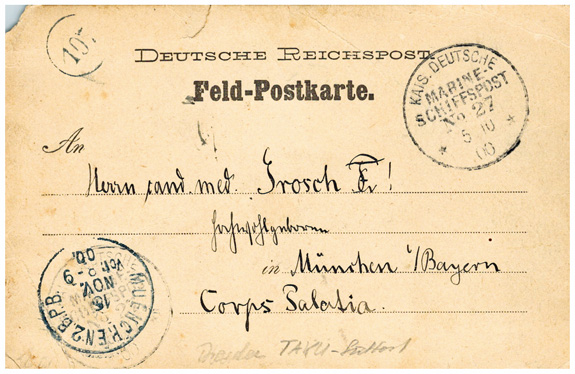 107
DEUTSCHE REICHSPOST
Feld-Postkarte.
KAIS. DEUTSCHE
MARINE-
SCHIFFSPOST
No 27
5 10
00
An
Herrn cand. med. Grosch Fr!
Hochwohlgeboren
in München i/Bayern
Corps Palatia.
MUENCHEN 2 B.P.B.
15
NOV.
VOR. 8-9
00.
TAKU-